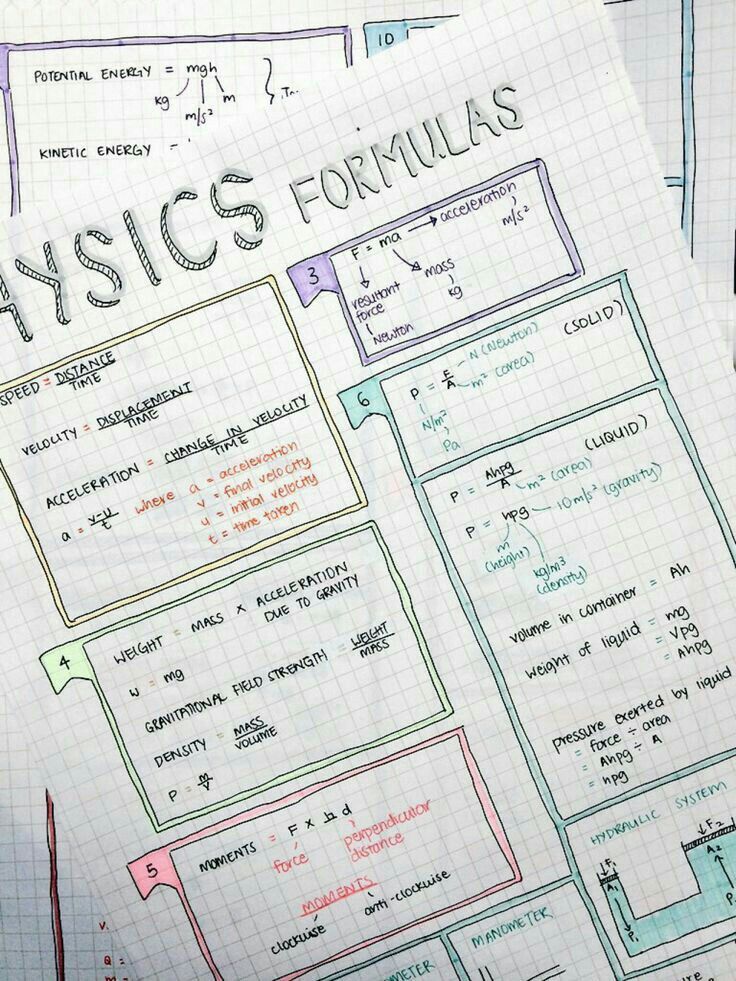 10
POTENTIAL ENERGY = mgh
kg
m/s²
m
KINETIC ENERGY =
HYSICS FORMULAS
SPEED = DISTANCE
TIME
VELOCITY = DISPLACEMENT
TIME
ACCELERATION = CHANGE IN VELOCITY
TIME
a = v-u
t
where a = acceleration
v = final velocity
u = initial velocity
t = time taken
3
F = ma → acceleration
m/s²
resultant
force
mass
kg
Newton
4
WEIGHT = MASS X ACCELERATION
DUE TO GRAVITY
w = mg
GRAVITATIONAL FIELD STRENGTH = WEIGHT
MASS
DENSITY = MASS
VOLUME
P = m
V
5
MOMENTS = F x ⊥ d
force
perpendicular
distance
MOMENTS
clockwise
anti-clockwise
6
P = F
A
N (Newton)
m² (area)
(SOLID)
N/m²
Pa
(LIQUID)
P = Ahpg
A
m² (area)
P = hpg
10m/s² (gravity)
m
(height)
kg/m³
(density)
volume in container = Ah
weight of liquid = mg
= Vpg
= Ahpg
pressure exerted by liquid
= force ÷ area
= Ahpg ÷ A
= hpg
HYDRAULIC SYSTEM
F₁
A₁
P₁
F₂
A₂
P
MANOMETER
OMETER
V.
Q =
m =